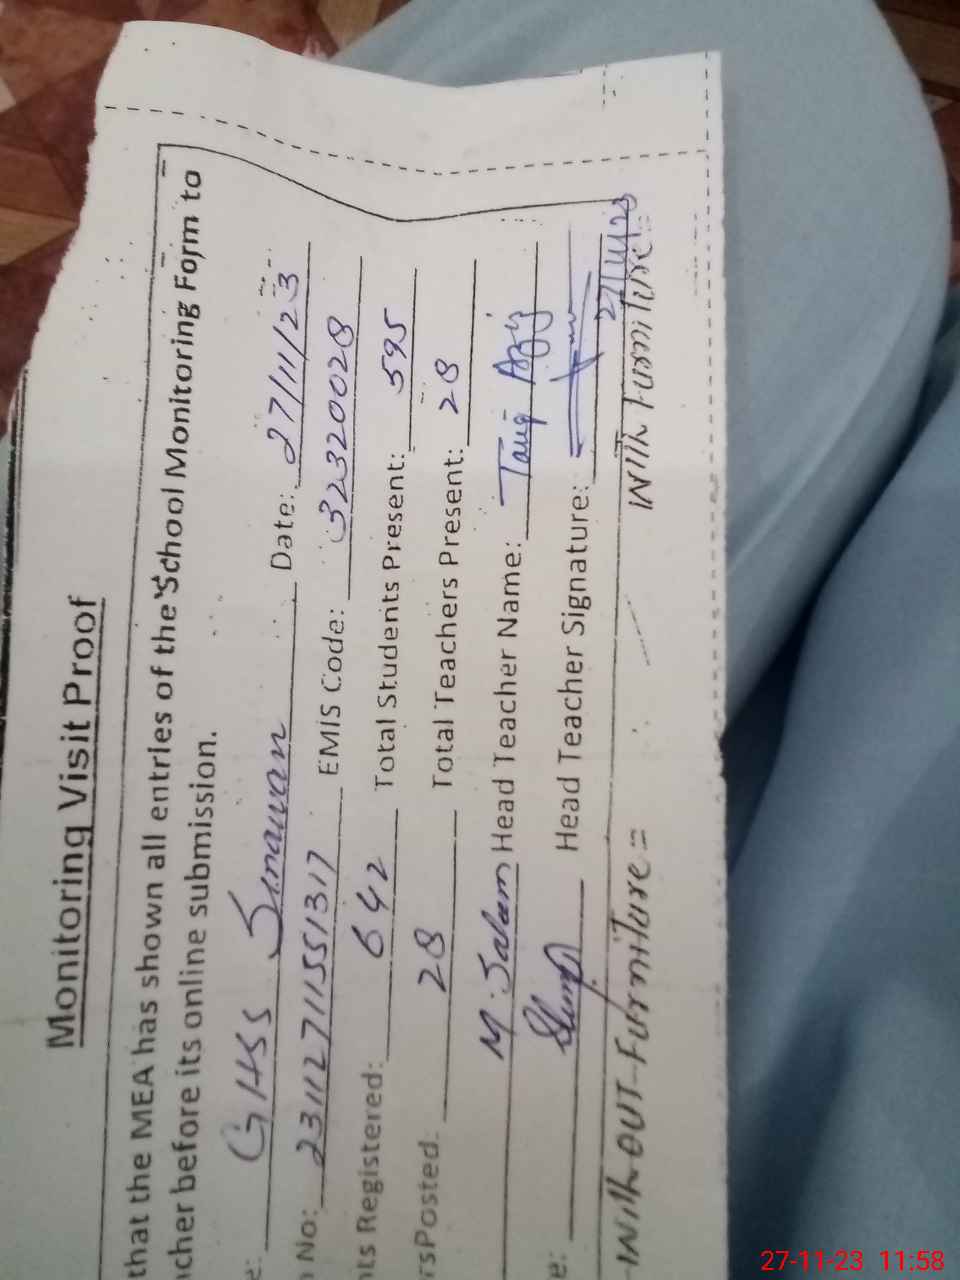 Monitoring Visit Proof
that the MEA has shown all entries of the School Monitoring Form to
acher before its online submission.
e: GHSS Sinawan Date: 27/11/23
n No: 23112711551317 EMIS Code: 32320028
nts Registered: 642 Total Students Present: 595
rsPosted: 28 Total Teachers Present: 28
M. Salam Head Teacher Name: Tariq Aziz
e: Head Teacher Signature:
27/11/23
With out Furniture = With Furniture =
27-11-23 11:58